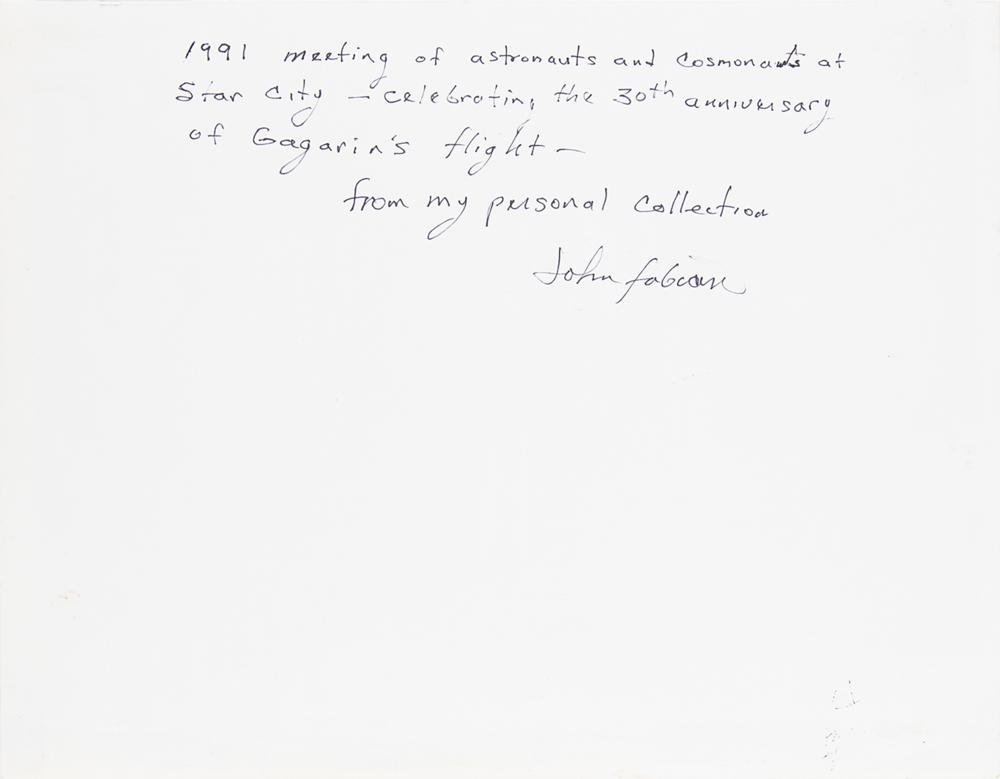 1991 meeting of astronauts and cosmonauts at
Star City – celebrating the 30th anniversary
of Gagarin's flight –
from my personal collection
John Fabian